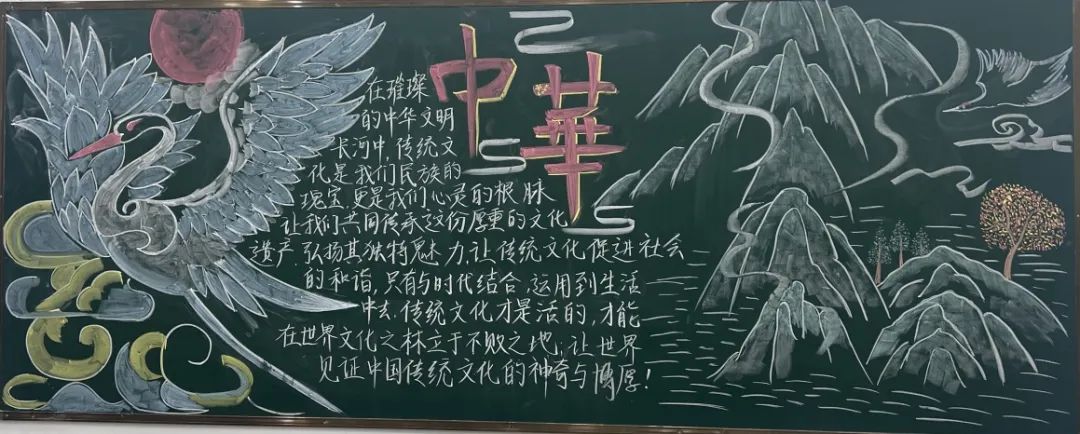 中華
在璀璨
的中华文明
长河中,传统文
化是我们民族的
瑰宝,更是我们心灵的根脉
让我们共同传承这份厚重的文化
遗产,弘扬其独特魅力,让传统文化促进社会
的和谐,只有与时代结合,运用到生活
中去,传统文化才是活的,才能
在世界文化之林立于不败之地,让世界
见证中国传统文化的神奇与博厚!